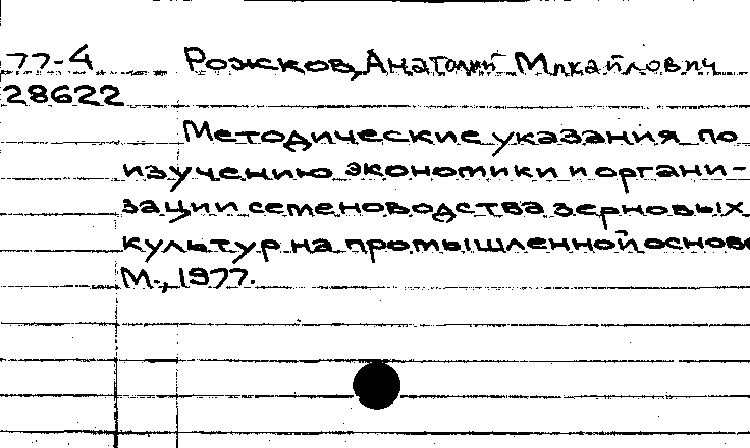 77-4 Рожков, Анатолий Михайлович
28622
Методические указания по
изучению экономики и органи-
зации семеноводства зерновых
культур на промышленной основе
М., 1977.